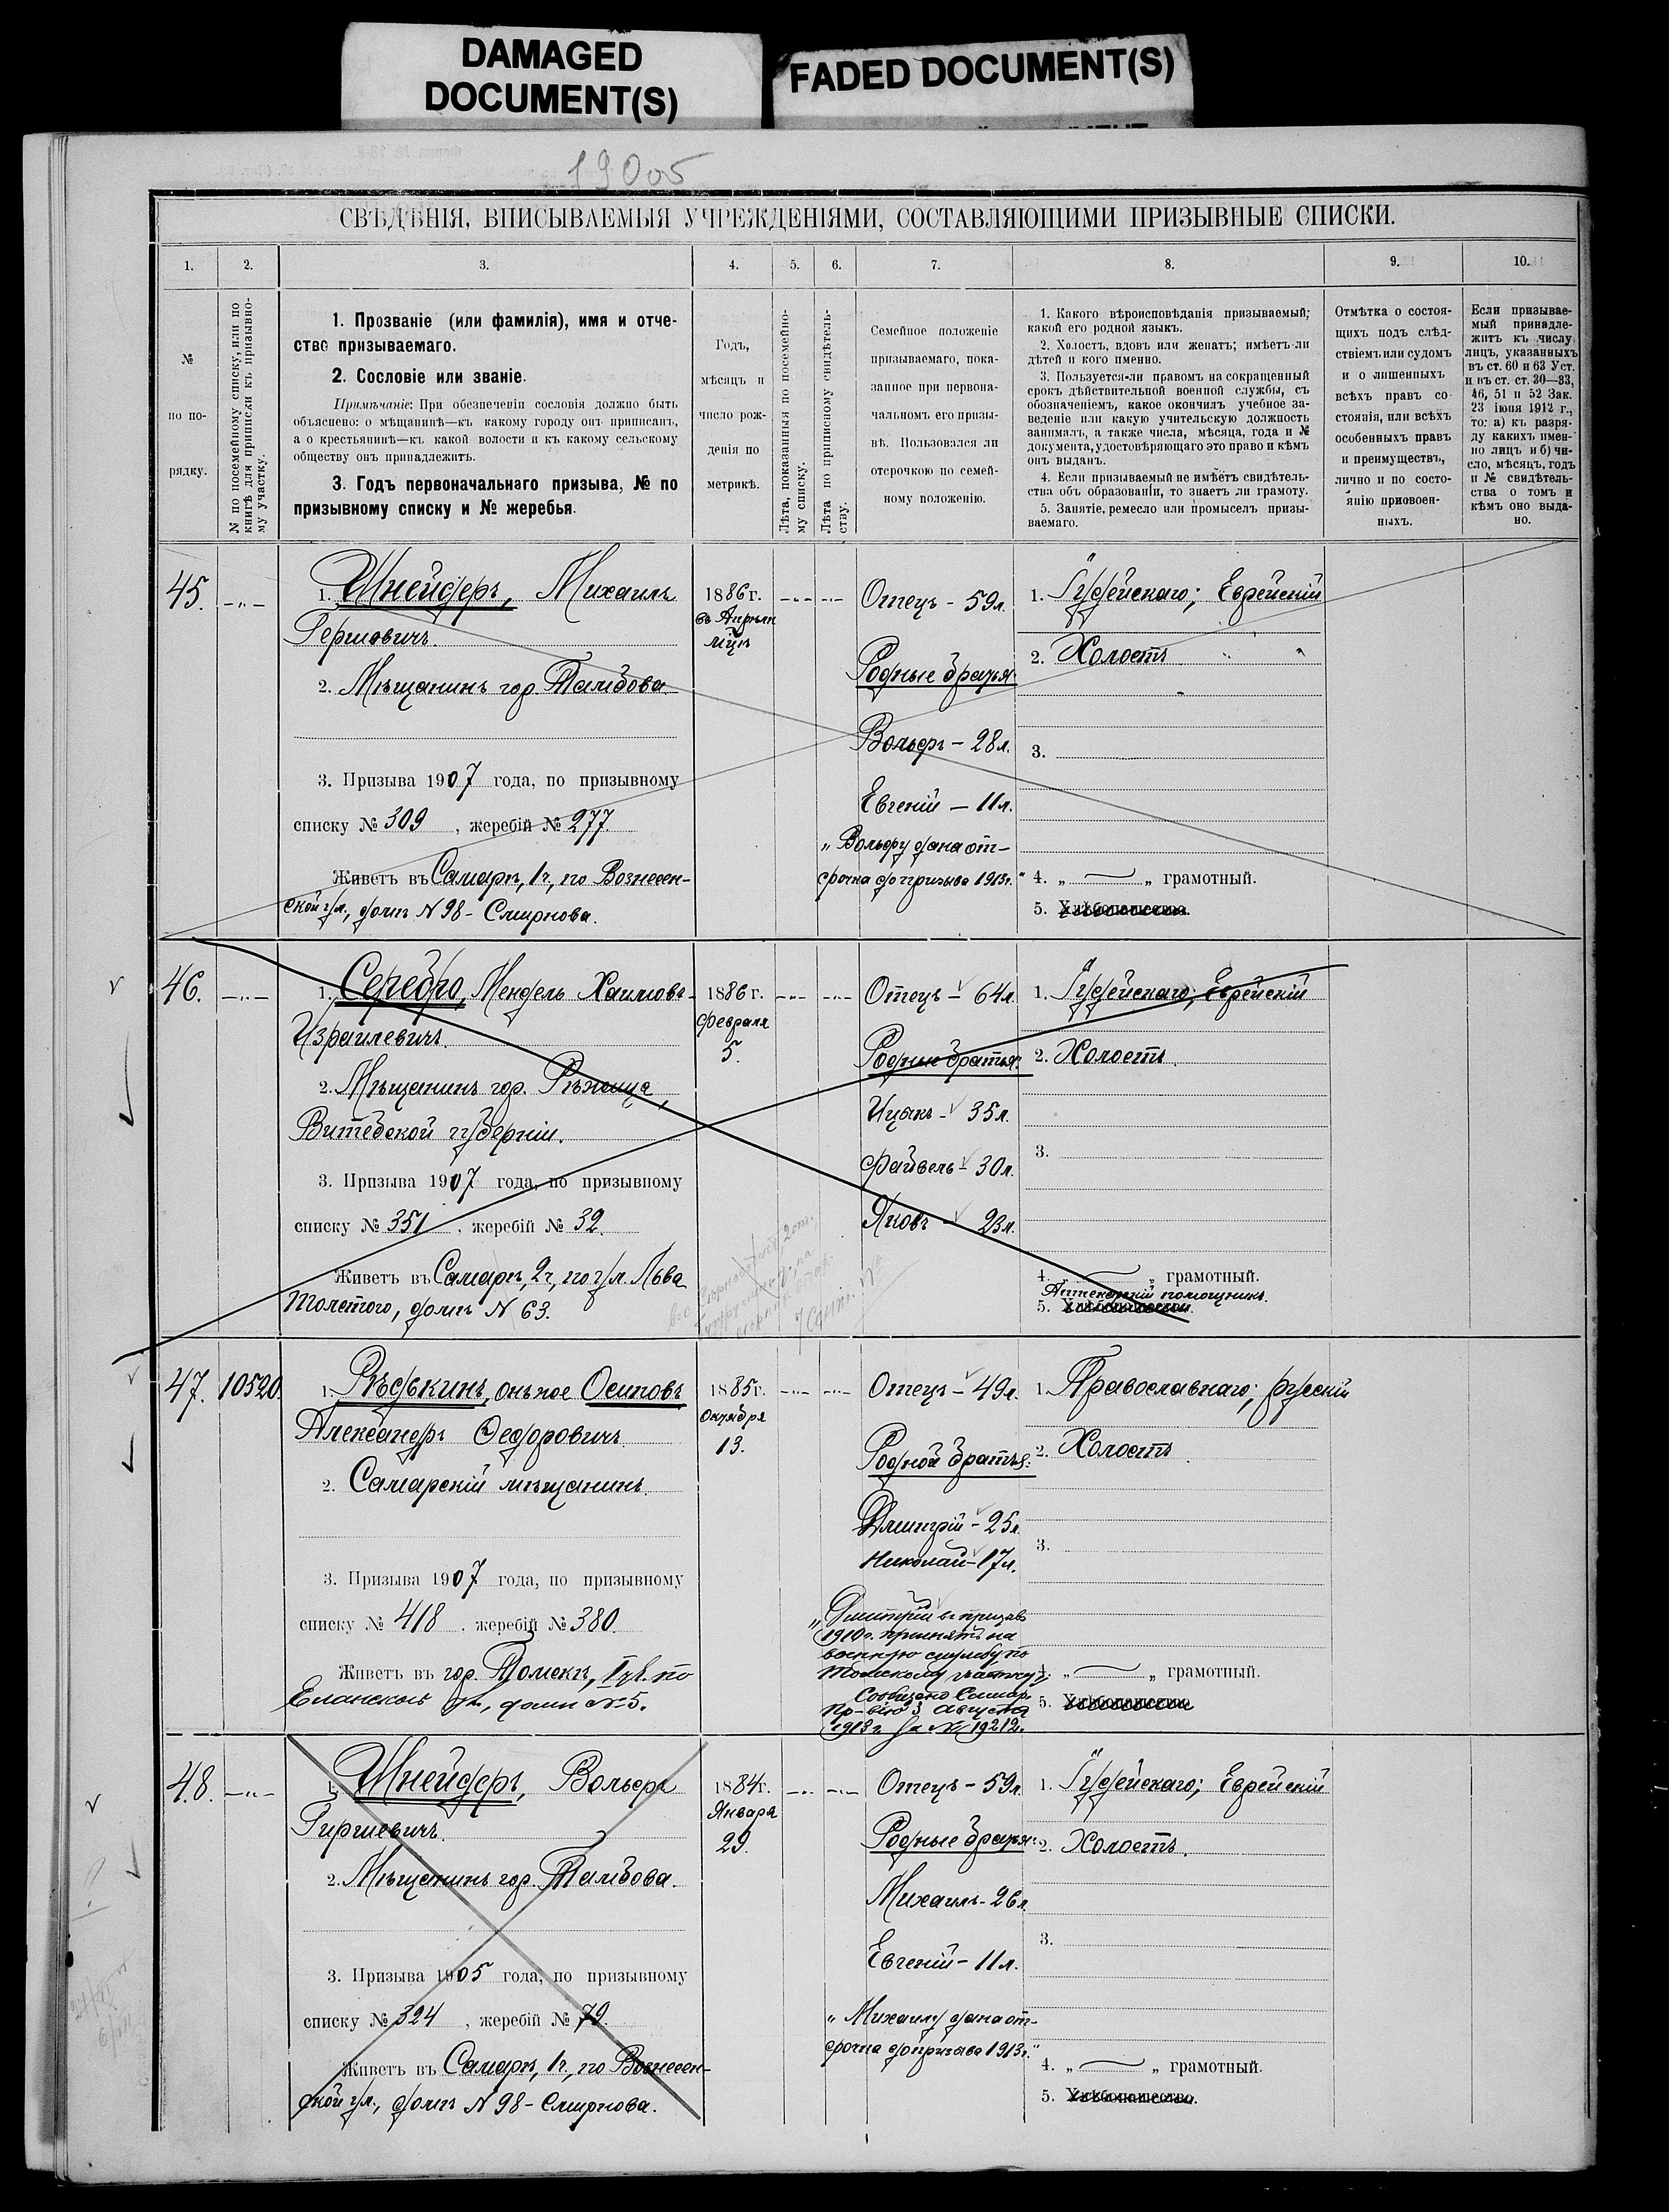 DAMAGED
DOCUMENT(S)
FADED DOCUMENT(S)
СВѢДѢНІЯ, ВПИСЫВАЕМЫЯ УЧРЕЖДЕНІЯМИ, СОСТАВЛЯЮЩИМИ ПРИЗЫВНЫЕ СПИСКИ.
1.
2.
3.
4.
5.
6.
7.
8.
9.
10.
№
по по-
рядку.
№ по посемейному списку, или по
книгѣ для приписки къ призывно-
му участку.
1. Прозваніе (или фамилія), имя и отче-
ство призываемаго.
2. Сословіе или званіе.
Примѣчаніе: При обезпеченіи сословія должно быть
объяснено: о мѣщанинѣ—къ какому городу онъ приписанъ,
а о крестьянинѣ—къ какой волости и къ какому сельскому
обществу онъ принадлежитъ.
3. Годъ первоначальнаго призыва, № по
призывному списку и № жеребья.
Годъ,
мѣсяцъ и
число рож-
денія по
метрикѣ.
Лѣта, показанныя по посемейно-
му списку.
Лѣта по приписному свидѣтель-
ству.
Семейное положеніе
призываемаго, пока-
занное при первона-
чальномъ его призы-
вѣ. Пользовался ли
отсрочкою по семей-
ному положенію.
1. Какого вѣроисповѣданія призываемый;
какой его родной языкъ.
2. Холостъ, вдовъ или женатъ; имѣетъ-ли
дѣтей и кого именно.
3. Пользуется-ли правомъ на сокращенный
срокъ дѣйствительной военной службы, съ
обозначеніемъ, какое окончилъ учебное за-
веденіе или какую учительскую должность
занималъ, а также числа, мѣсяца, года и №
документа, удостовѣряющаго это право и кѣмъ
онъ выданъ.
4. Если призываемый не имѣетъ свидѣтель-
ства объ образованіи, то знаетъ ли грамоту.
5. Занятіе, ремесло или промыселъ призы-
ваемаго.
Отмѣтка о состоя-
щихъ подъ слѣд-
ствіемъ или судомъ
и о лишенныхъ
всѣхъ правъ со-
стоянія, или всѣхъ
особенныхъ правъ
и преимуществъ,
лично и по состо-
янію присвоен-
ныхъ.
Если призывае-
мый принадле-
житъ къ числу
лицъ, указанныхъ
въ ст. 60 и 63 Уст.
и въ ст. ст. 30—33,
46, 51 и 52 Зак.
23 іюня 1912 г.,
то: а) къ разря-
ду какихъ имен-
но лицъ и б) чи-
сло, мѣсяцъ, годъ
и № свидѣтель-
ства о томъ и
кѣмъ оно выда-
но.
45.
1. Шнейдеръ, Михаилъ
Гершовичъ.
2. Мѣщанинъ гор. Тамбова.
3. Призыва 1907 года, по призывному
списку № 309, жеребій № 277.
Живетъ въ Самарѣ, 1 ч., по Вознесен-
ской ул., домъ № 98 - Смирнова.
1886 г.
въ Апрѣлѣ
м-цѣ
Отецъ - 59 л.
Родные братья:
Вольфъ - 28 л.
Евгеній - 11 л.
„Вольфу дана от-
срочка до призыва 1913 г."
1. Іудейскаго; Еврейскій
2. Холостъ
3.
4. „ — „ грамотный.
5. Хлѣбопашество.
46.
1. Серебро, Мендель Хаимовъ-
Израилевичъ.
2. Мѣщанинъ гор. Рѣжица,
Витебской губерніи.
3. Призыва 1907 года, по призывному
списку № 351, жеребій № 32.
Живетъ въ Самарѣ, 2 ч., по ул. Льва
Толстого, домъ № 63.
1886 г.
Февраля
5.
Отецъ - 64 л.
Родные братья:
Ицакъ - 35 л.
Файвель - 30 л.
Яковъ - 23 л.
1. Іудейскаго; Еврейскій
2. Холостъ.
3.
4. „ — „ грамотный.
Аптекарскій помощникъ.
5. Хлѣбопашество.
47.
10520.
1. Рѣдькинъ, онъ же Осиповъ
Александръ Ѳедоровичъ.
2. Самарскій мѣщанинъ.
3. Призыва 1907 года, по призывному
списку № 418, жеребій № 380.
Живетъ въ гор. Томскѣ, 1 уч. по
Еланской ул., домъ № 5.
1885 г.
Октября
13.
Отецъ - 49 л.
Родной братья:
Дмитрій - 25 л.
Николай - 17 л.
„Дмитрій въ призывъ
1910 г. принятъ на
военную службу по
Томскому участку";
Сообщено Самар.
Пр-вію 3 Августа
1913 г. за № 19212.
1. Православнаго; русскій
2. Холостъ.
3.
4. „ — „ грамотный.
5. Хлѣбопашество
48.
1. Шнейдеръ, Вольфъ
Гиршевичъ.
2. Мѣщанинъ гор. Тамбова.
3. Призыва 1905 года, по призывному
списку № 324, жеребій № 79.
Живетъ въ Самарѣ, 1 ч., по Вознесен-
ской ул., домъ № 98 - Смирнова.
1884 г.
Января
29.
Отецъ - 59 л.
Родные братья:
Михаилъ - 26 л.
Евгеній - 11 л.
„Михаилу дана от-
срочка до призыва 1913 г."
1. Іудейскаго; Еврейскій
2. Холостъ.
3.
4. „ — „ грамотный.
5. Хлѣбопашество.